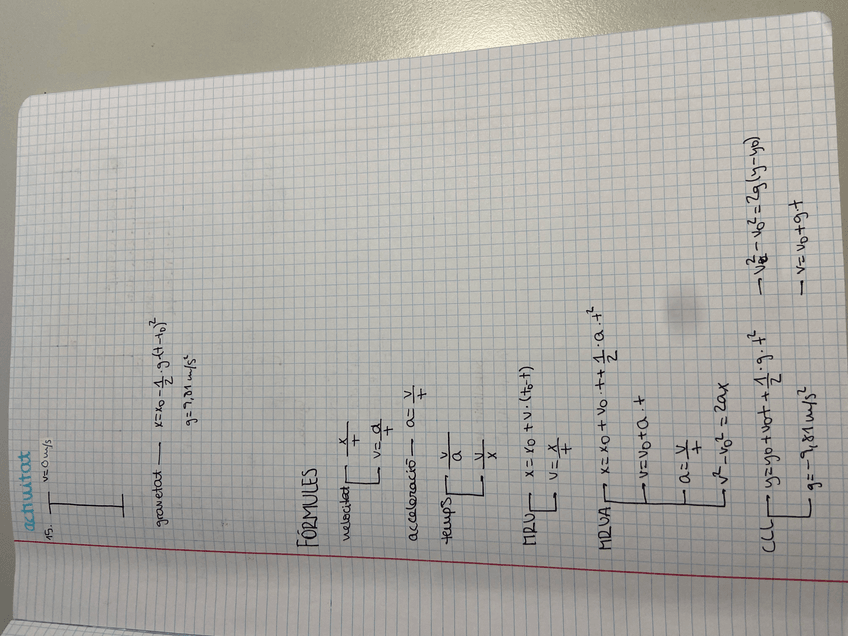 activitat
15. v=0 m/s
gravetat — x=x₀-1/2·g·(t-t₀)²
g=9,81 m/s²
FÓRMULES
velocitat → x/t
→ v=a/t
acceleració — a=v/t
temps → v/a
→ v/x
MRU → x=x₀+v·(t₀-t)
→ v=x/t
MRVA → x=x₀+v₀·t+1/2·a·t²
→ v=v₀+a·t
→ a=v/t
→ v²-v₀²=2ax
CLL → y=y₀+v₀t+1/2·g·t² → v²-v₀²=2g(y-y₀)
→ g=-9,81 m/s² → v=v₀+g·t